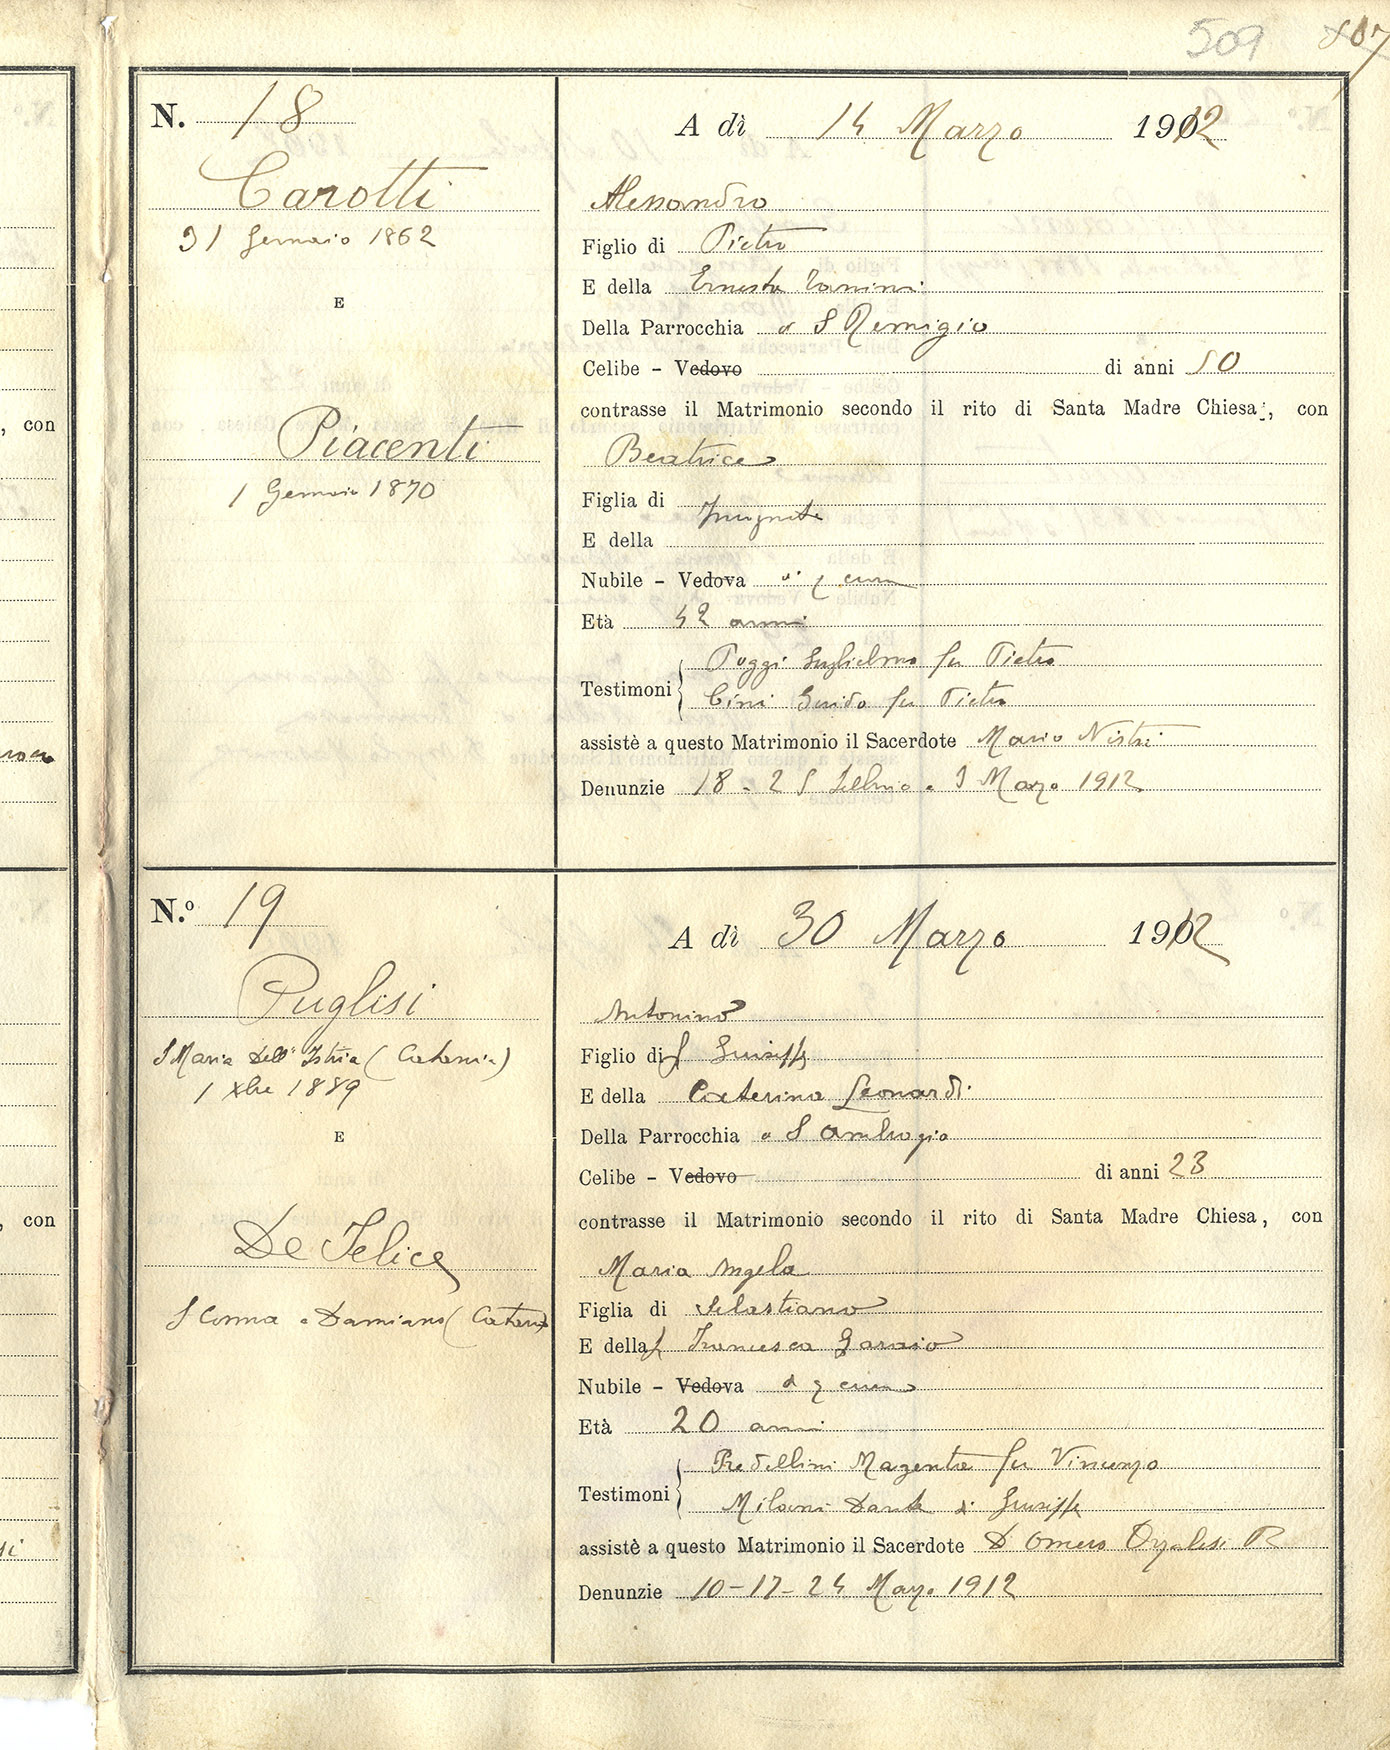 509
N. 18
Carotti
31 Gennaio 1862
E
Piacenti
1 Gennaio 1870
A dì 14 Marzo 1912
Alessandro
Figlio di Pietro
E della Ernesta Vannini
Della Parrocchia a S Remigio
Celibe - Vedovo di anni 50
contrasse il Matrimonio secondo il rito di Santa Madre Chiesa, con
Beatrice
Figlia di
E della
Nubile - Vedova di q cura
Età 42 anni
Poggi Guglielmo fu Pietro
Testimoni
Cini Guido fu Pietro
assistè a questo Matrimonio il Sacerdote Mario Nistri
Denunzie 18 - 25 Febbraio e 3 Marzo 1912
, con
N.º 19
Puglisi
S Maria dell' Istria (Catania)
1 Xbre 1889
E
De Felice
S Cosma e Damiano (Catania)
A dì 30 Marzo 1912
Antonino
Figlio di f Giuseppe
E della Caterina Leonardi
Della Parrocchia a S Ambrogio
Celibe - Vedovo di anni 23
contrasse il Matrimonio secondo il rito di Santa Madre Chiesa, con
Maria Angela
Figlia di Sebastiano
E della f Francesca Garaio
Nubile - Vedova di q cura
Età 20 anni
Predellini Magenta fu Vincenzo
Testimoni
Milani Dante di Giuseppe
assistè a questo Matrimonio il Sacerdote D Omero Orzalesi R
Denunzie 10-17-24 Marzo 1912
, con